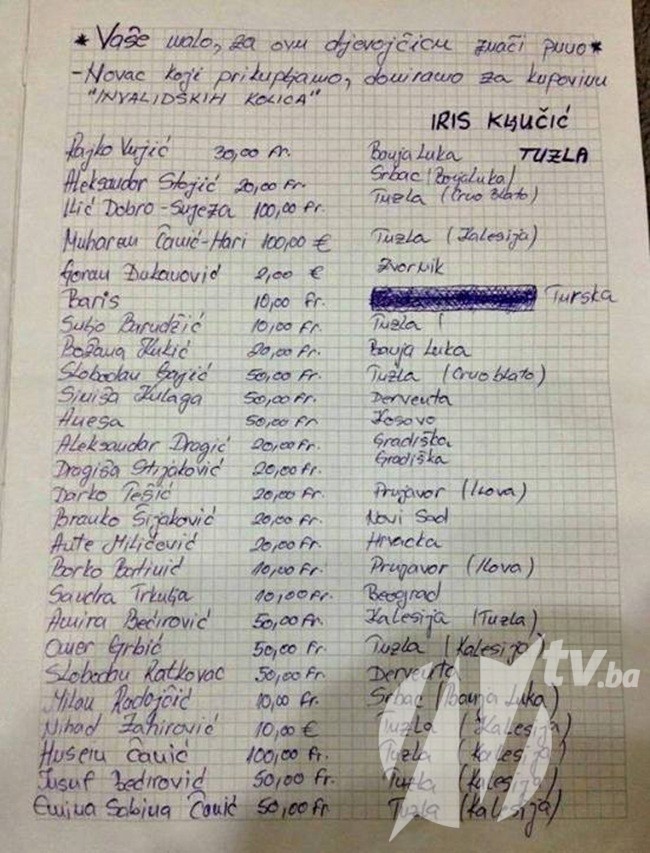 * Vaše malo, za ovu djevojčicu znači puno *
- Novac koji prikupljamo, doniramo za kupovinu
"INVALIDSKIH KOLICA"
IRIS KLJUČIĆ
TUZLA
Rajko Vujić 30,00 Fr. Banja Luka
Aleksandar Stojić 20,00 Fr. Srbac (Banja Luka)
Ilić Dobro - Snježa 100,00 Fr. Tuzla (Crno Blato)
Muharem Čanić-Hari 100,00 € Tuzla (Kalesija)
Goran Đukanović 2,00 € Zvornik
Baris 10,00 Fr. Turska
Suljo Barudžić 10,00 Fr. Tuzla
Božana Kukić 20,00 Fr. Banja Luka
Slobodan Gajić 50,00 Fr. Tuzla (Crno blato)
Siniša Kulaga 50,00 Fr. Derventa
Anesa 50,00 Fr. Kosovo
Aleksandar Dragić 20,00 Fr. Gradiška
Dragiša Stijaković 20,00 Fr. Gradiška
Darko Tešić 20,00 Fr. Prnjavor (Ilova)
Branko Šijaković 20,00 Fr. Novi Sad
Ante Miličević 20,00 Fr. Hrvacka
Borko 10,00 Fr. Prnjavor (Ilova)
Sandra Trkulja 10,00 Fr. Beograd
Amira Bećirović 50,00 Fr. Kalesija (Tuzla)
Omer Grbić 50,00 Fr. Tuzla (Kalesija)
Slobodan Ratkovac 50,00 Fr. Derventa
Milan Radojčić 10,00 Fr. Srbac (Banja Luka)
Nihad Zahirović 10,00 € Tuzla (Kalesija)
Husein Čanić 100,00 Fr. Tuzla (Kalesija)
Jusuf Bećirović 50,00 Fr. Tuzla (Kalesija)
Emina Sabina Čanić 50,00 Fr Tuzla (Kalesija)
tv.ba